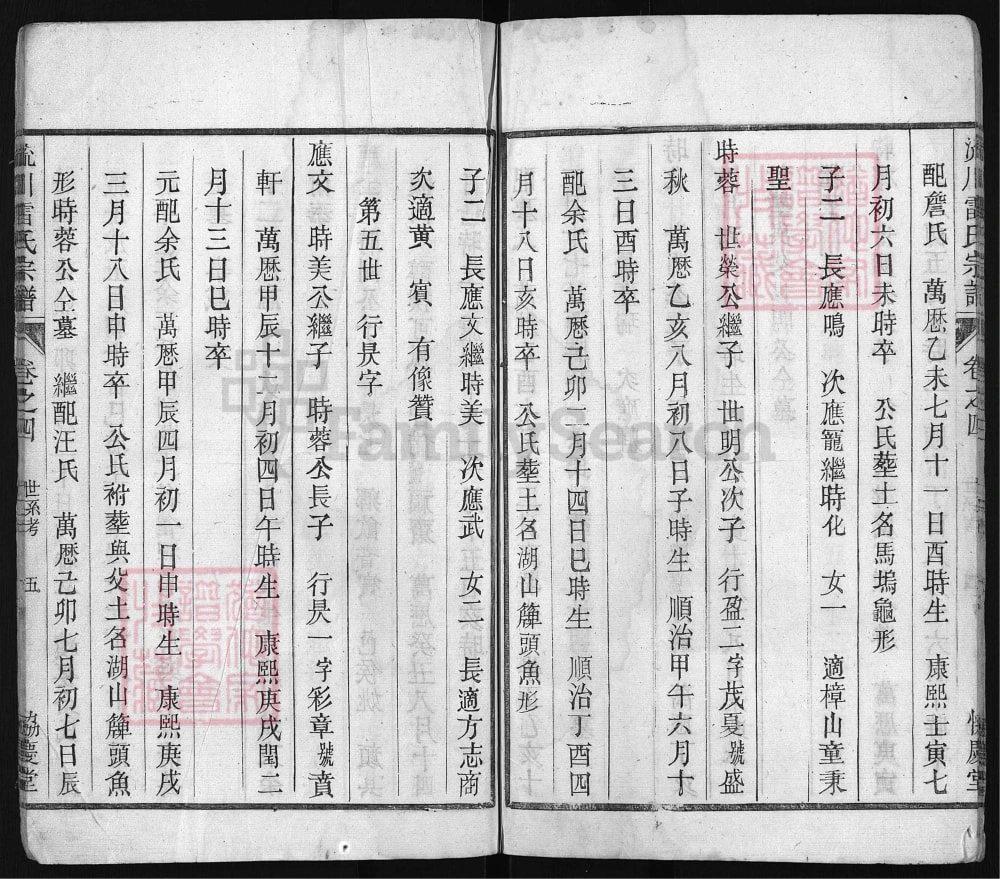 配詹氏 萬厯乙未七月十一日酉時生 康熙壬寅七
月初六日未時卒 公氏塟土名馬塢龜形
子二 長應鳴 次應寵繼時化 女一 適樟山童秉
聖
時蓉 世榮公繼子 世明公次子 行盈二字茂夏號盛
秋 萬厯乙亥八月初八日子時生 順治甲午六月十
三日酉時卒
配余氏 萬厯己卯二月十四日巳時生 順治丁酉四
月十八日亥時卒 公氏塟土名湖山簰頭魚形
子二 長應文繼時美 次應武 女二 長適方志商
次適黄 賔 有像贊
第五世 行昃字
應文 時美公繼子 時蓉公長子 行昃一字彩章號賁
軒 萬厯甲辰十一月初四日午時生 康熙庚戌閏二
月十三日巳時卒
元配余氏 萬厯甲辰四月初一日申時生 康熙庚戌
三月十八日申時卒 公氏祔塟與父土名湖山簰頭魚
形時蓉公仝墓 繼配汪氏 萬厯己卯七月初七日辰
流川雷氏宗譜 卷之四 世系考 五 協慶堂
FamilySearch